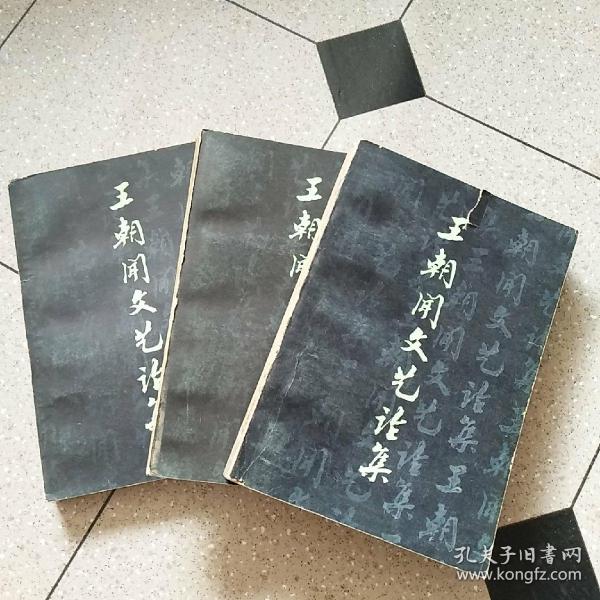 王朝闻文艺论集
王朝闻
王朝闻文艺论集
孔夫子旧書网
www.kongfz.com